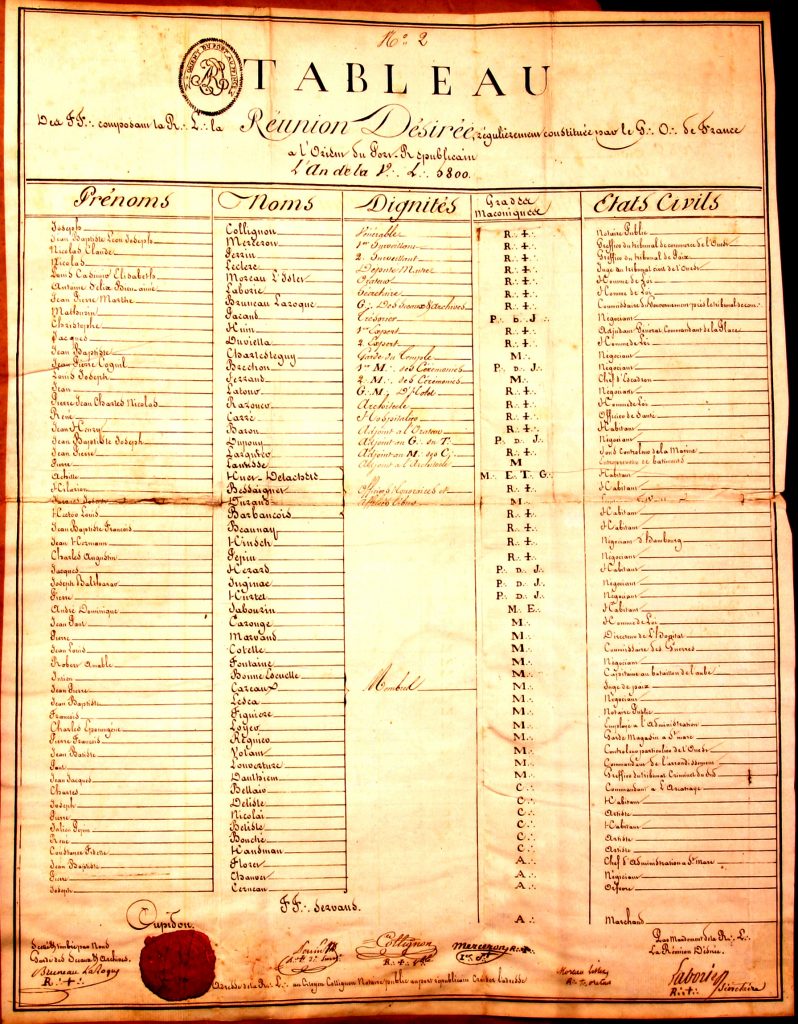 N.º 2
TABLEAU
Des FF∴ composant la R∴ L∴ la Réunion Désirée, régulièrement constituée par le G∴ O∴ de France
a l'Orient du Port-Républicain
L'An de la V∴ L∴ 5800.
Prénoms Noms Dignités Grades Maconiques Etats Civils
Joseph Collignon Vénérable R∴ ✝∴ Notaire Public
Jean Baptiste Leon Joseph Merceron 1er Surveillant R∴ ✝∴ Greffier du tribunal de commerce de l'Ouest
Nicolas Claude Perrin 2. Surveillant R∴ ✝∴ Greffier du tribunal de Paix
Nicolas Leclerc Députe Maitre R∴ ✝∴ Juge au tribunal civil de l'Ouest
Louis Casimir Elisabeth Moreau L'Islet Orateur R∴ ✝∴ Homme de Loi
Antoine Felix Bien-aimé Laborie Secrétaire R∴ ✝∴ Homme de Loi
Jean Pierre Marthe Bruneau Laroque G∴ Des Sceaux & Archives R∴ ✝∴ Commissaire du Gouvernement près le tribunal
Mathurin Gacaud Trésorier P∴ D∴ J∴ Negociant
Christophe Huin 1er Expert R∴ ✝∴ Adjudant Général Commandant de la Place
Jacques Duviella 2. Expert R∴ ✝∴ Homme de Loi
Jean Baptiste Charlesteguy Garde du Temple M∴ Negociant
Jean Pierre Coquil Brechon 1er M∴ des Cérémonies P∴ D∴ J∴ Negociant
Louis Joseph Ferrand 2. M∴ des Cérémonies M∴ Chef d'Escadron
Jean Latour G∴ M∴ D'Hotel R∴ ✝∴ Negociant
Pierre Jean Charles Nicolas Architecte R∴ ✝∴ Homme de Loi
René Carré Hospitalier R∴ ✝∴ Officier de Santé
Jean Henry Baron Adjoint a l'Orateur R∴ ✝∴ Habitant
Jean Baptiste Joseph Dupouy Adjoint au G∴ du T∴ P∴ D∴ J∴ Négociant
Jean Pierre Adjoint au M∴ des C∴ R∴ ✝∴
Pierre Adjoint a l'Architecte M Entrepreneur de batiments
Achille Huet-Delachers M∴ E∴ T∴ G∴ Habitant
Hilarion Bessaignet Officiers Honoraires et R∴ ✝∴ Habitant
Durand Officiers M∴
Hector Louis Barbancois R∴ ✝∴ Habitant
Jean Baptiste François Beaunay R∴ ✝∴ Habitant
Jean Hermann Hinsch R∴ ✝∴ Négociant d'Hambourg
Charles Augustin Pepin R∴ ✝∴ Négociant
Jacques Herard P∴ D∴ J∴ Habitant
Joseph Balthazar Inginac P∴ D∴ J∴ Négociant
Pierre Hurtet P∴ D∴ J∴ Négociant
André Dominique Sabourin M∴ E∴ Habitant
Jean Paul Carouge M∴ Homme de Loi
Pierre Marraud M∴ Directeur de L'Hopital
Jean Louis Cotelle M∴ Commissaire des Guerres
Robert Amable Fontaine M∴ Négociant
Julien Bonne Escuelle M∴ Capitaine au bataillon de l'aube
Jean Pierre Cazeaux Membres M∴ Juge de paix
Jean Baptiste Lesca M∴ Négociant
François Figuiere M∴ Notaire Public
Charles Loyer M∴ Employé a l'Administration
Pierre François Regnier M∴ Garde Magasin a St marc
Jean Batiste Volant M∴ Controleur particulier de l'Ouest
Paul Louverture M∴ Commandant de l'arrondissement
Jean Jacques Danthiem M∴ Greffier du tribunal Criminel du Sud
Charles Bellair C∴ Commandant a L'Arcahaye
Joseph Delisle C∴ Habitant
Pierre Nicolai C∴ Artiste
Julien Pepin Belisle C∴ Habitant
René Bouchié C∴ Artiste
Constance Fidele Handman C∴ Artiste
Jean Baptiste Floret A∴ Chef d'Administration a St Marc
Pierre Chauvet A∴ Négociant
Joseph Cerneau A∴ Orfevre
FF∴ Servans.
Cupidon. A∴ Marchand
Scellé & timbré par Nous
Garde des Sceaux & Archives.
Bruneau Laroque
R∴ ✝∴
Collignon
R∴ ✝∴
Mercezon R∴ ✝∴
1er S∴
Moreau Lislet
Par Mandement de la R∴ L∴
La Réunion Désirée.
Laborie
R∴ ✝∴ Sécrétaire
Adresse de la R∴ L∴ au Citoyen Collignon Notaire public au port républicain